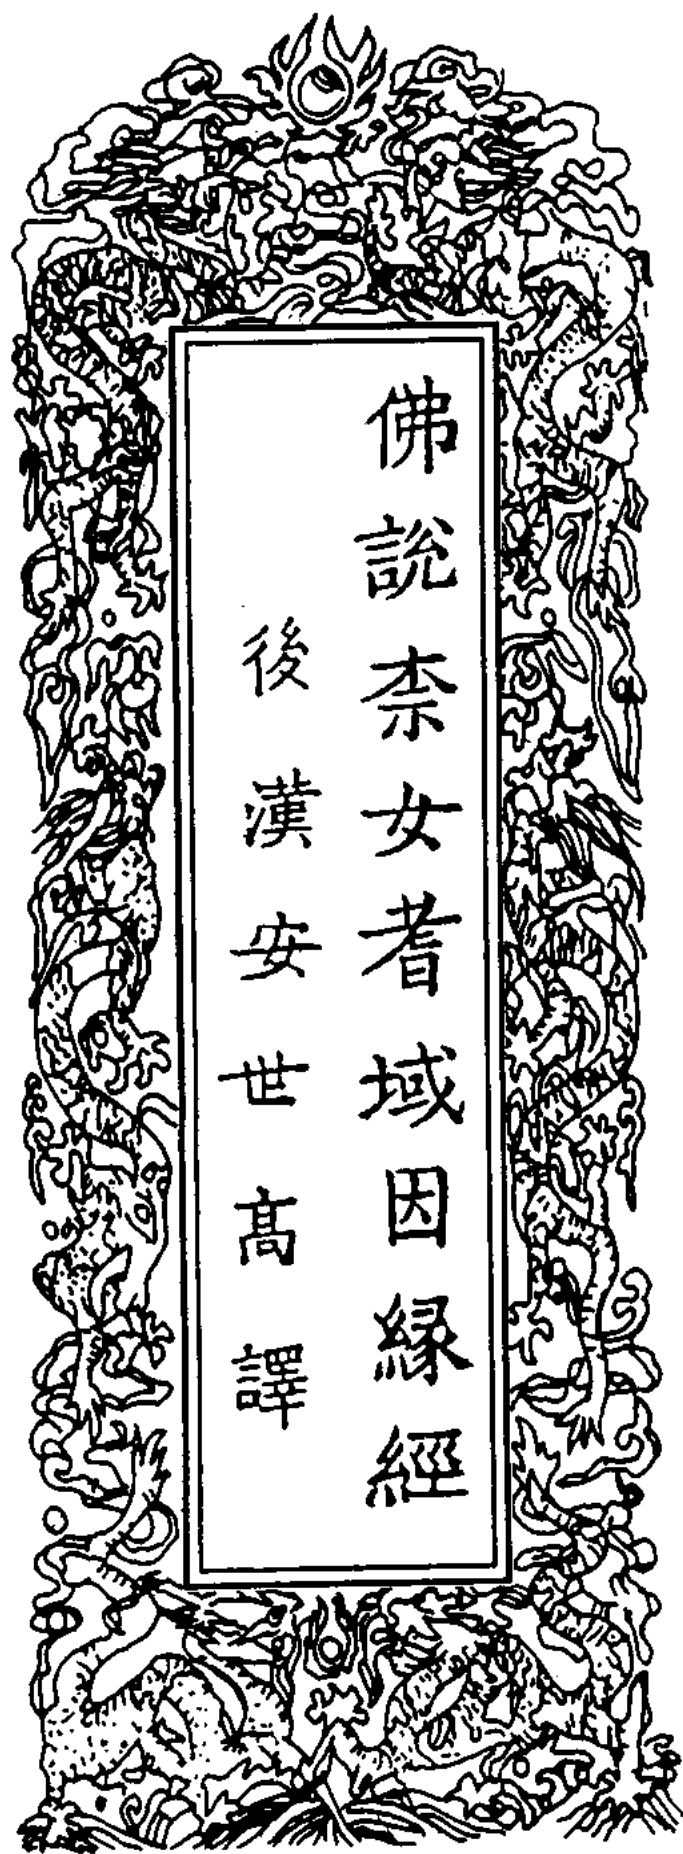 佛說柰女耆域因縁經
後漢安世髙譯